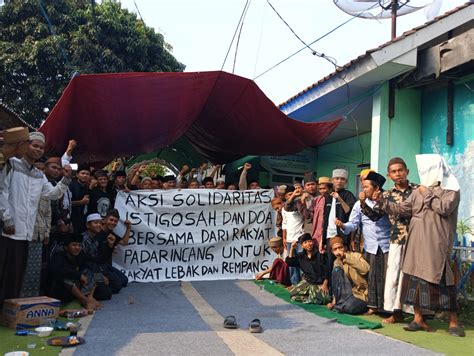 AKSI SOLIDARITAS
ISTIGOSAH DAN DOA
BERSAMA DARI RAKYAT
PADARINCANG UNTUK
RAKYAT LEBAK DAN REMPANG
ANNA